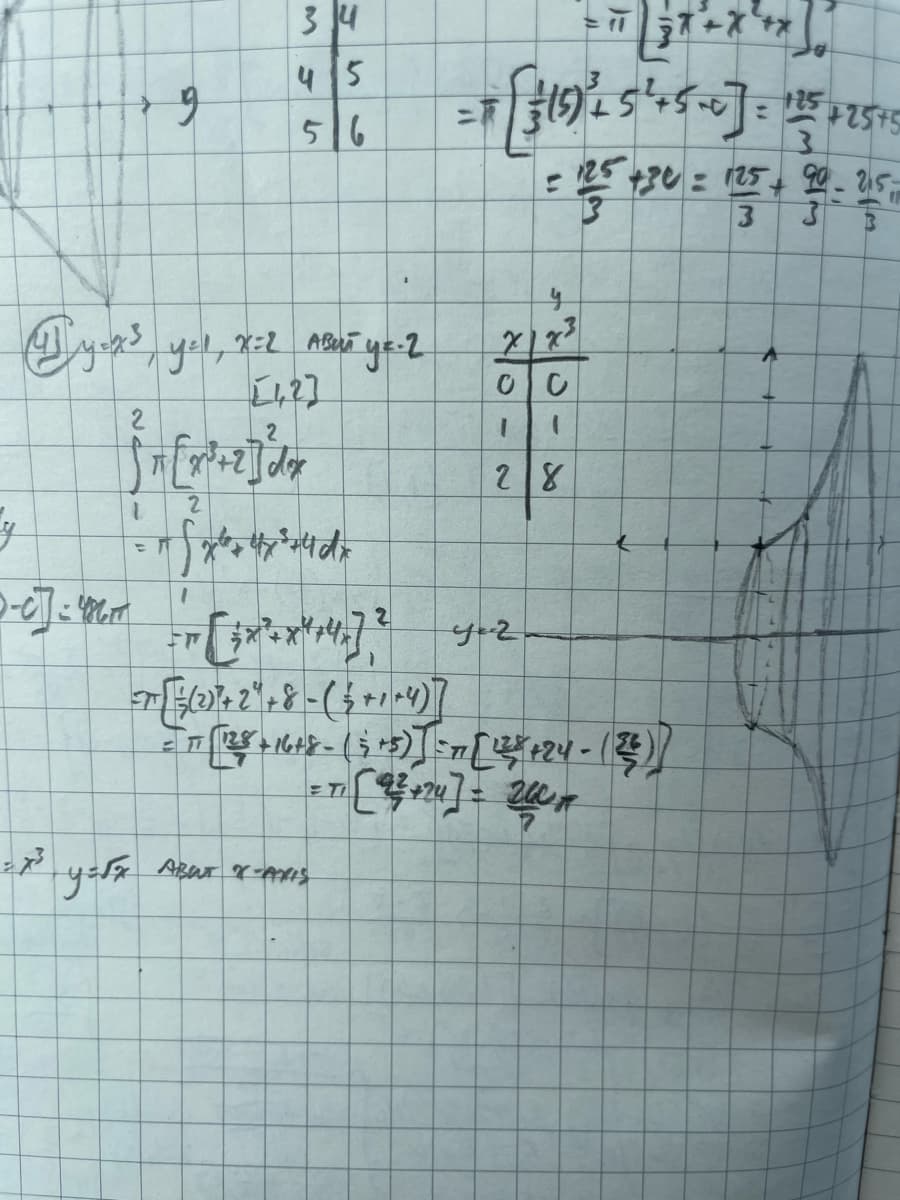 3 | 4
4 | 5
5 | 6
9
= π [1/3 x³ + x² + x]
= π [1/3 (5)³ + 5² + 5 - 0] = 125/3 + 25 + 5
= 125/3 + 30 = 125/3 + 90/3 = 215π/3
4) y=x³, y=1, x=2 ABOUT y=-2
[1,2]
∫₁² π[x³+2]² dx
= π ∫₁² x⁶+4x³+4 dx
-0] = 486π
= π [1/7 x⁷ + x⁴ + 4x]₁²
= π [1/7 (2)⁷ + 2⁴ + 8 - (1/7 + 1 + 4)]
= π [128/7 + 16 + 8 - (1/7 + 5)] = π [128/7 + 24 - (36/7)]
= π [92/7 + 24] = 260/7 π
y
x | x³
0 | 0
1 | 1
2 | 8
y=-2
= x³ y=√x ABOUT x-AXIS